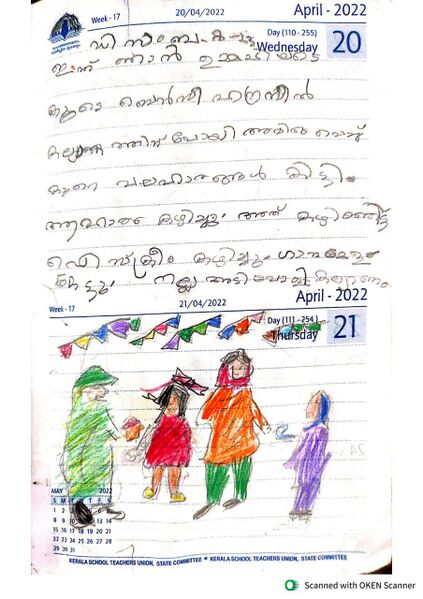 Week - 17
20/04/2022
April - 2022
Day (110 - 255)
Wednesday
20
ഡിസംബർ
ഇന്ന് ഞാൻ ഉമ്മച്ചിയുടെ
കൂടെ
കല്യാണത്തിന് പോയി അതിൽ വെച്ച്
കുറെ പലഹാരങ്ങൾ കിട്ടി.
ആഹാരം കഴിച്ചു. അത് കഴിഞ്ഞിട്ട്
ഐസ്ക്രീം കഴിച്ചു. ഗാനമേളയും
കേട്ടു. നല്ല അടിപൊളി കല്യാണം
Week - 17
21/04/2022
April - 2022
Day (111 - 254)
Thursday
21
MAY 2022
S M T W T F S
1 2 3 4 5 6 7
8 9 10 11 12 13 14
15 16 17 18 19 20 21
22 23 24 25 26 27 28
29 30 31
KERALA SCHOOL TEACHERS UNION, STATE COMMITTEE * KERALA SCHOOL TEACHERS UNION, STATE COMMITTEE
Scanned with OKEN Scanner